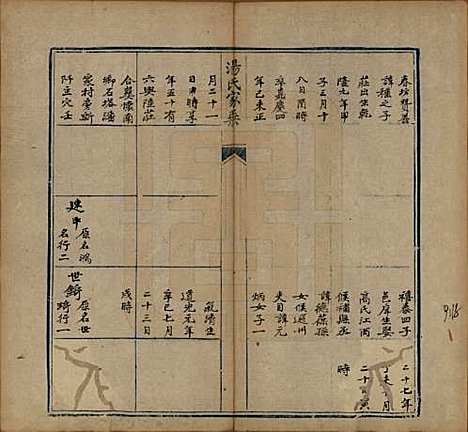 春坊贊善
諱種之子
莊出生乾
隆元年甲
子三月十
八日酉時
卒嘉慶四
年己未正
湯氏家乘
月二十一
日申時享
年五十有
六與陸莊
合葬棣南
鄉石塔潘
家村旁新
阡主穴壬
建中
原名鴻
名行二
禧泰四子
邑庠生娶
高氏江西
候補縣丞
諱德葆孫
女候選州
吏目諱元
炳女子一
世錡
原名世
琦行一
二十七年
丁未 月
二十 寅
時
氣清生
道光元年
辛巳七月
二十三日
戌時